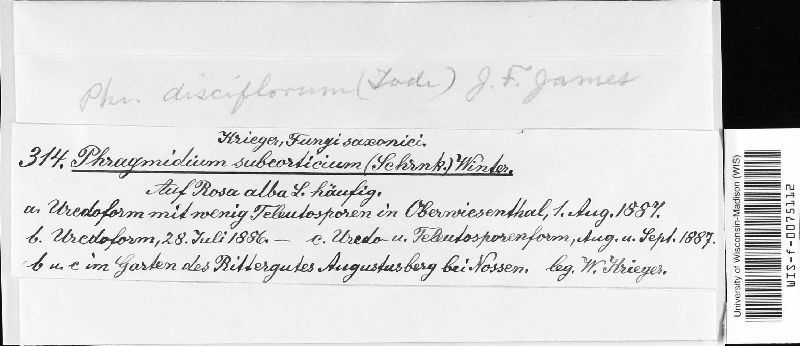 Phr. disciflorum (Tode) J. F. James
Krieger, Fungi saxonici.
314. Phragmidium subcorticium (Schrnk.) Winter.
Auf Rosa alba L. häufig.
a. Uredoform mit wenig Teleutosporen in Oberwiesenthal, 1. Aug. 1887.
b. Uredoform, 28. Juli 1886. — c. Uredo- u. Teleutosporenform, Aug. u. Sept. 1887.
b u. c im Garten des Rittergutes Augustusberg bei Nossen. leg. W. Krieger.
University of Wisconsin-Madison (WIS)
WIS-f-0075112